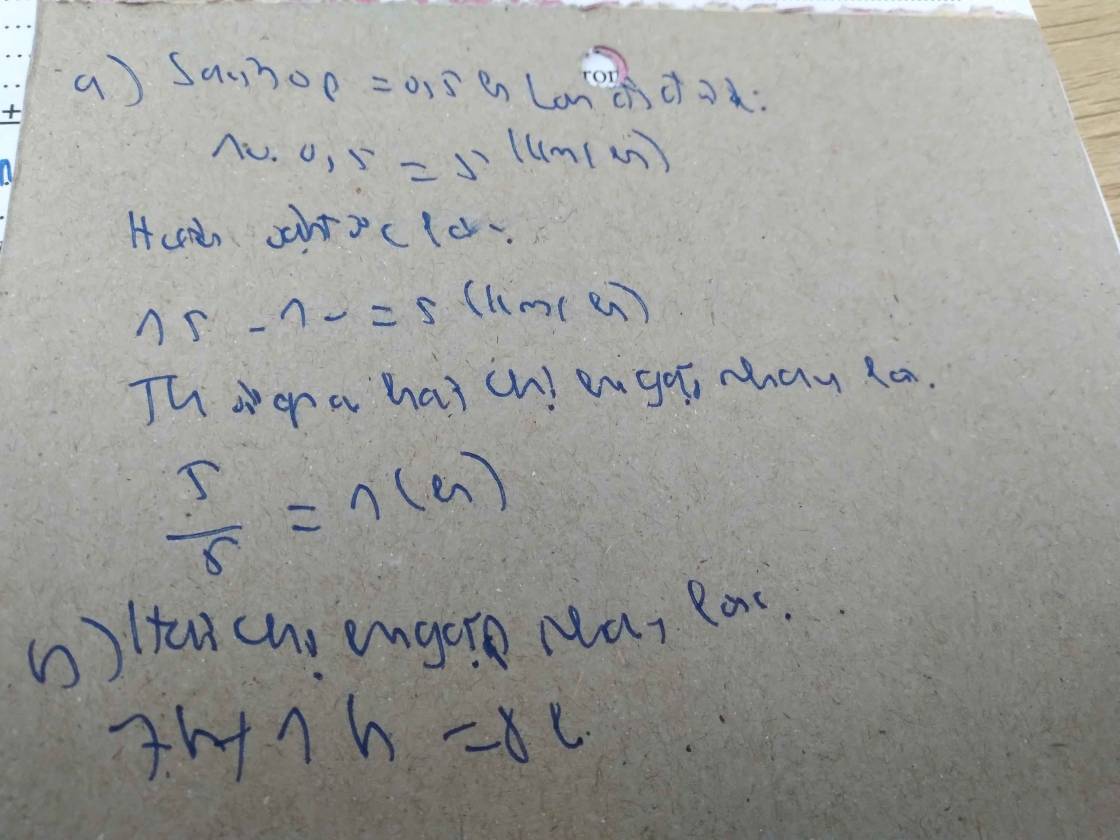 a) Sau 30p = 0,5h Lan đã đi được:
10. 0,5 = 5 (km/h)
Hiệu vận tốc là:
15 - 10 = 5 (km/h)
Thời gian hai chị em gặp nhau là.
5/5 = 1 (h)
b) Hai chị em gặp nhau lúc.
7h + 1h = 8h
ron